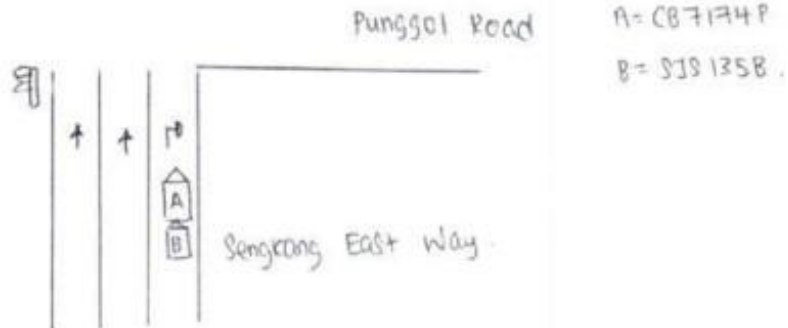 Punggol Road
A= CB7174P
B= SJS 135B.
A
B
Sengkang East Way.